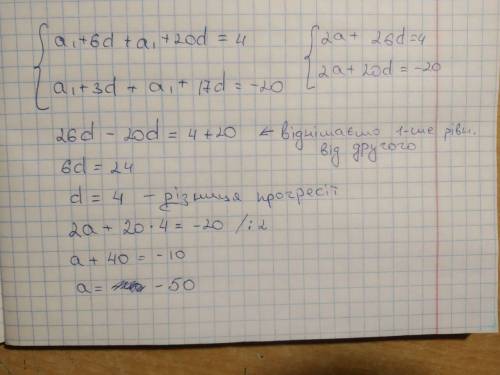 a₁+6d+a₁+20d=4
a₁+3d+a₁+17d=-20
2a+26d=4
2a+20d=-20
26d-20d=4+20 ← віднімаємо 1-ше рівн.
від другого
6d=24
d=4 - різниця прогресії
2a+20·4=-20 /:2
a+40=-10
a= -50